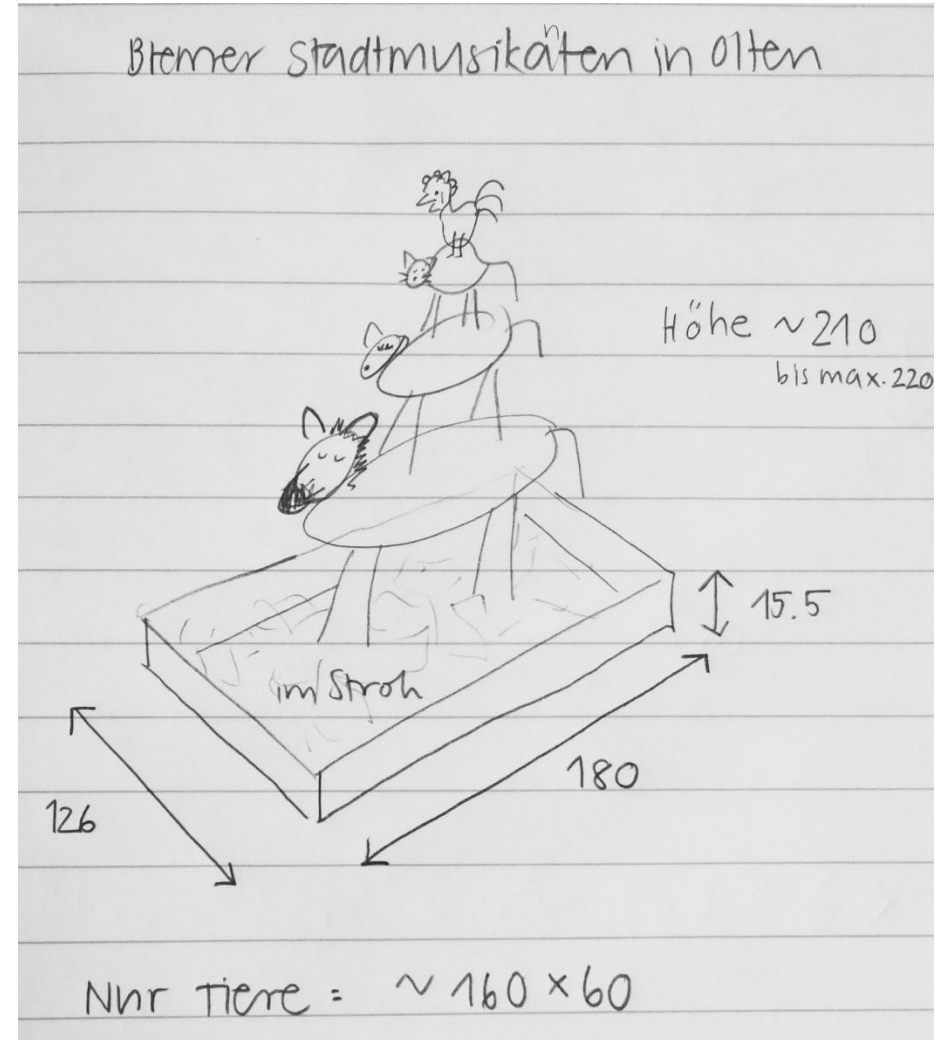 Bremer Stadtmusikanten in Olten
Höhe ~210
bis max. 220
15.5
im Stroh
180
126
Nur Tiere = ~160 × 60